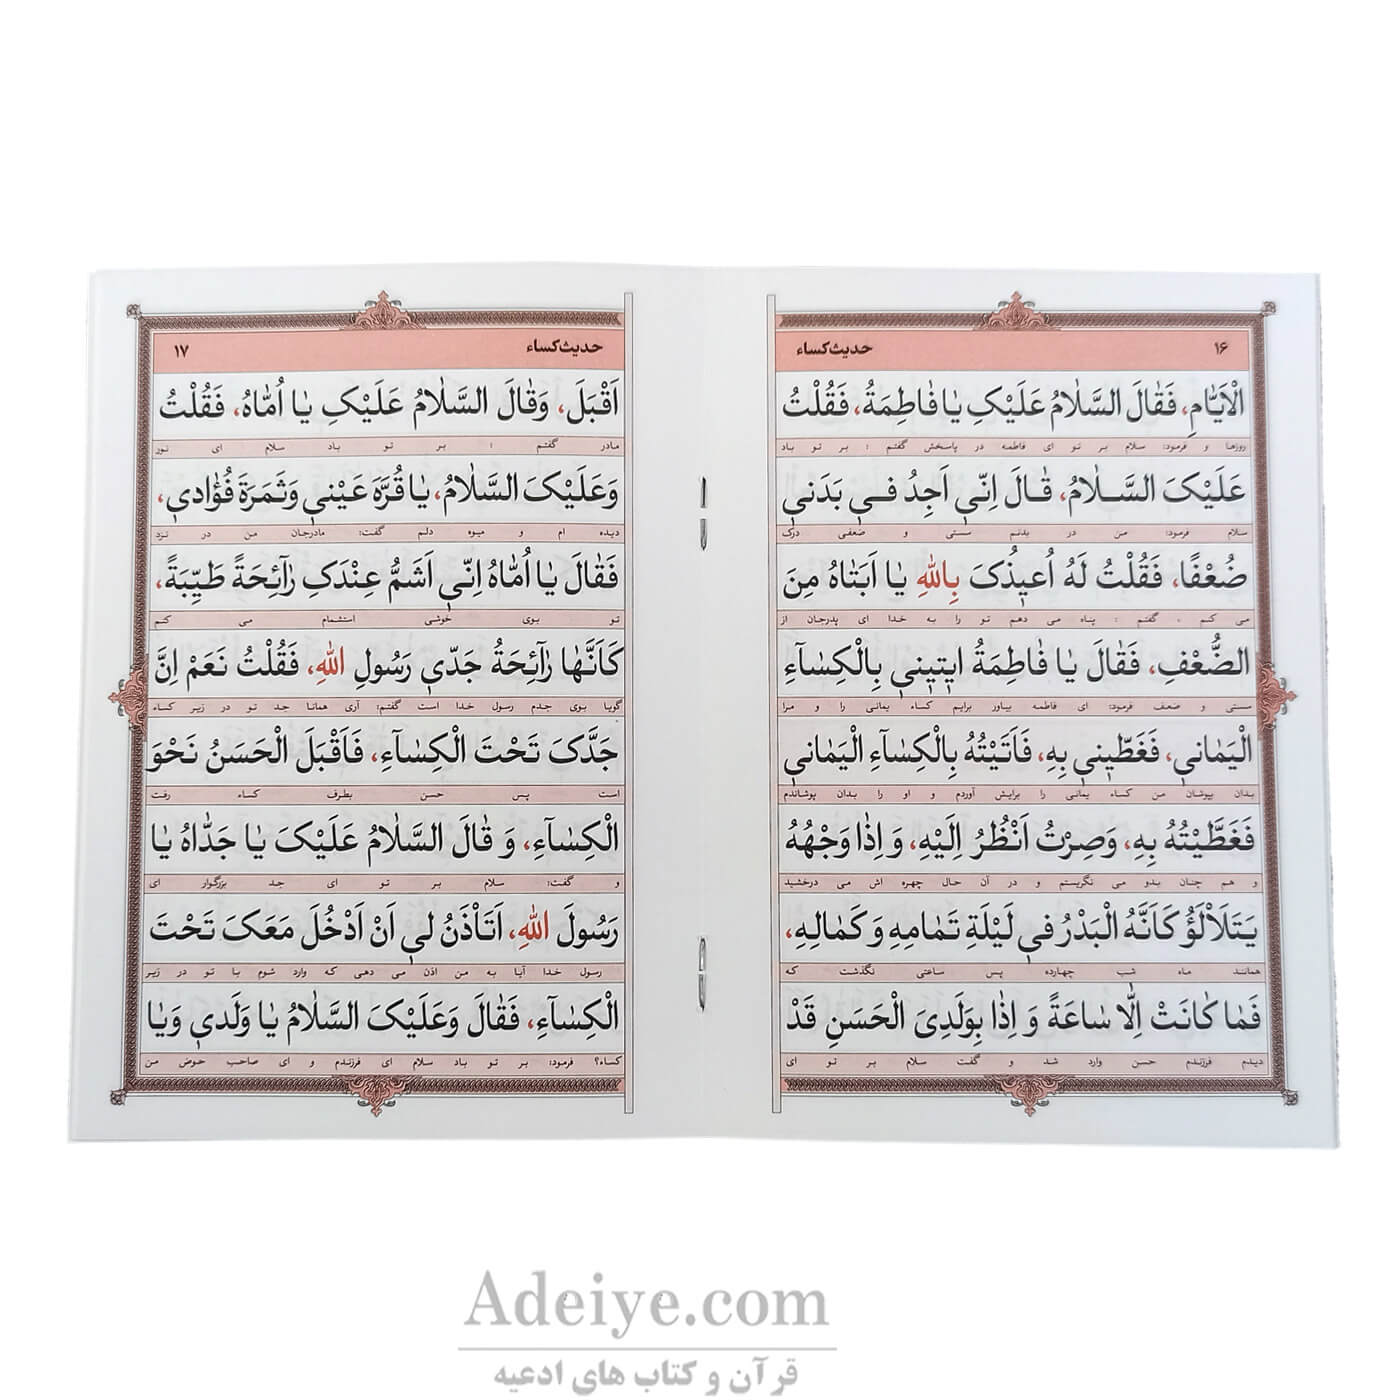 ۱۶ حدیث کساء
الْاَیّٰامِ، فَقٰالَ السَّلٰامُ عَلَیْکِ یٰا فٰاطِمَةُ، فَقُلْتُ
روزها و فرمود: سلام بر تو ای فاطمه در پاسخش گفتم : بر تو باد
عَلَیْکَ السَّلٰامُ، قٰالَ اِنّٖی اَجِدُ فٖی بَدَنٖی
سلام فرمود: من در بدنم سستی و ضعفی درک
ضُعْفًا، فَقُلْتُ لَهُ اُعٖیذُکَ بِاللّٰهِ یٰا اَبَتٰاهُ مِنَ
می کنم ، گفتم : پناه می دهم تو را به خدا ای پدرجان از
الضُّعْفِ، فَقٰالَ یٰا فٰاطِمَةُ اٖیتٖینٖی بِالْکِسٰآءِ
سستی و ضعف فرمود: ای فاطمه بیاور برایم کساء یمانی را و مرا
الْیَمٰانٖی، فَغَطّٖینٖی بِهِ، فَاَتَیْتُهُ بِالْکِسٰآءِ الْیَمٰانٖی
بدان بپوشان من کساء یمانی را برایش آوردم و او را بدان پوشاندم
فَغَطَّیْتُهُ بِهِ، وَصِرْتُ اَنْظُرُ اِلَیْهِ، وَ اِذٰا وَجْهُهُ
و هم چنان بدو می نگریستم و در آن حال چهره اش می درخشید
یَتَلَاْلَؤُ کَاَنَّهُ الْبَدْرُ فٖی لَیْلَةِ تَمٰامِهِ وَ کَمٰالِهِ،
همانند ماه شب چهارده پس ساعتی نگذشت که
فَمٰا کٰانَتْ اِلّٰا سٰاعَةً وَ اِذٰا بِوَلَدِیَ الْحَسَنِ قَدْ
دیدم فرزندم حسن وارد شد و گفت سلام بر تو ای
حدیث کساء ۱۷
اَقْبَلَ، وَقٰالَ السَّلٰامُ عَلَیْکِ یٰا اُمّٰاهُ، فَقُلْتُ
مادر گفتم : بر تو باد سلام ای نور
وَعَلَیْکَ السَّلٰامُ، یٰا قُرَّةَ عَیْنٖی وَثَمَرَةَ فُؤٰادٖی،
دیده ام و میوه دلم گفت: مادرجان من در نزد
فَقٰالَ یٰا اُمّٰاهُ اِنّٖی اَشَمُّ عِنْدَکِ رٰآئِحَةً طَیِّبَةً،
تو بوی خوشی استشمام می کنم
کَاَنَّهٰا رٰآئِحَةُ جَدّٖی رَسُولِ اللّٰهِ، فَقُلْتُ نَعَمْ اِنَّ
گویا بوی جدم رسول خدا است گفتم: آری همانا جد تو در زیر کساء
جَدَّکَ تَحْتَ الْکِسٰآءِ، فَاَقْبَلَ الْحَسَنُ نَحْوَ
است پس حسن بطرف کساء رفت
الْکِسٰآءِ، وَ قٰالَ السَّلٰامُ عَلَیْکَ یٰا جَدّٰاهُ یٰا
و گفت: سلام بر تو ای جد بزرگوار ای
رَسُولَ اللّٰهِ، اَتَاْذَنُ لٖی اَنْ اَدْخُلَ مَعَکَ تَحْتَ
رسول خدا آیا به من اذن می دهی که وارد شوم با تو در زیر
الْکِسٰآءِ، فَقٰالَ وَعَلَیْکَ السَّلٰامُ یٰا وَلَدٖی وَیٰا
کساء؟ فرمود: بر تو باد سلام ای فرزندم و ای صاحب حوض من
Adeiye.com
قرآن و کتاب های ادعیه